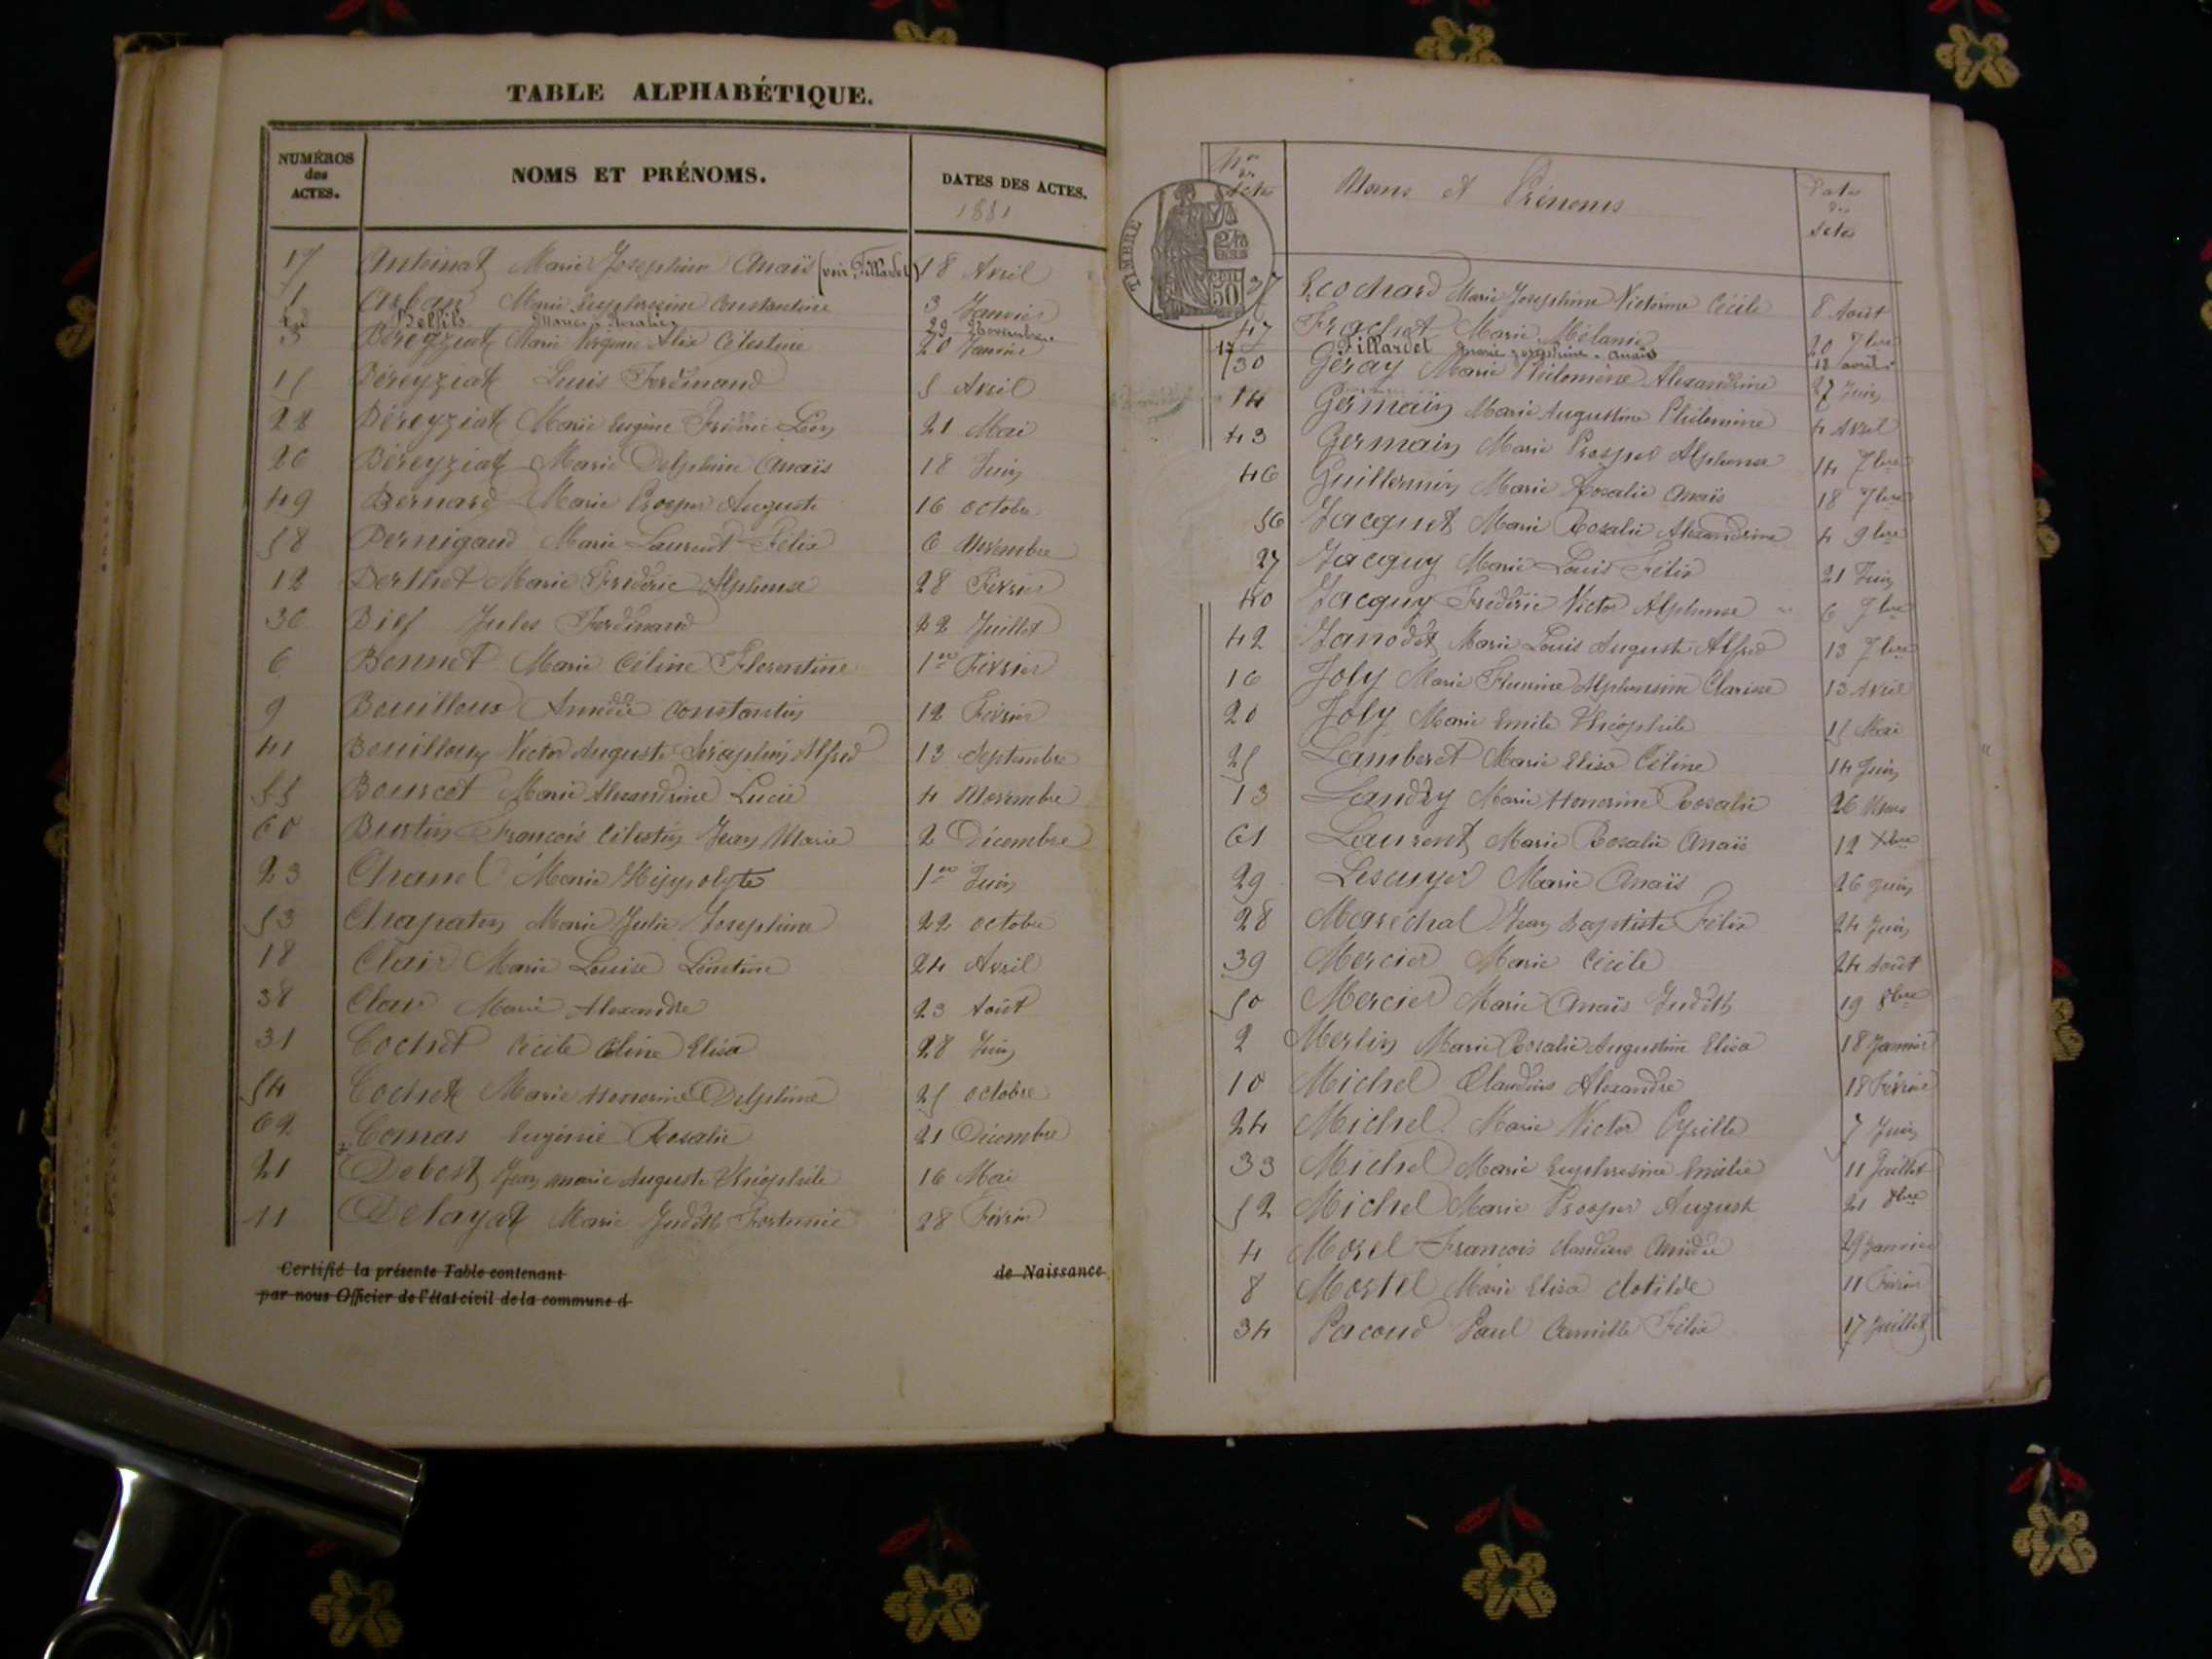 TABLE ALPHABÉTIQUE.
NUMÉROS des ACTES. NOMS ET PRÉNOMS. DATES DES ACTES.
1881
17 Antoinat Marie Josephine Anaïs (voir Fillardet) 18 Avril
1 Arban Marie Euphrosine Constantine 3 Janvier
Belfils Marie Rosalie 29 Novembre
3 Béreyziat Marie Virginie Alix Célestine 20 Janvier
15 Béreyziat Louis Ferdinand 5 Avril
22 Béreyziat Marie Eugène Frédéric Léon 21 Mai
26 Béreyziat Marie Delphine Anaïs 18 Juin
49 Bernard Marie Prosper Auguste 16 octobre
58 Bernigaud Marie Laurent Félix 6 Novembre
12 Berthet Marie Frédéric Alphonse 28 Février
36 Bief Jules Ferdinand 22 Juillet
6 Bonnet Marie Céline Florentine 1er Février
9 Bouilloux Amédée Constantin 12 Février
41 Bouilloux Victor Auguste Séraphin Alfred 13 Septembre
55 Bourcet Marie Alexandrine Lucie 4 Novembre
60 Burtin François Célestin Jean Marie 2 Décembre
23 Chanel Marie Hippolyte 1er Juin
53 Chapaton Marie Julie Josephine 22 octobre
18 Clair Marie Louise Léontine 24 Avril
38 Clair Marie Alexandre 23 Août
31 Cochet Cécile Céline Elisa 28 Juin
54 Cochet Marie Honorine Delphine 25 octobre
62 Comas Eugénie Rosalie 21 Décembre
21 Debost Jean Marie Auguste Théophile 16 Mai
11 Delayat Marie Judith Fortunie 28 Février
Certifié la présente Table contenant de Naissance
par nous Officier de l'état civil de la commune d
Nos des Actes Noms et Prénoms Dates des Actes
TIMBRE
50
37 Ecochard Marie Josephine Victorine Cécile 8 Août
47 Frachet Marie Mélanie 20 7bre
17 Fillardet Marie Joséphine Anaïs 18 avril
30 Géray Marie Philomène Alexandrine 27 Juin
14 Germain Marie Augustine Philomène 4 Avril
43 Germain Marie Prosper Alphonse 14 7bre
46 Guillermin Marie Rosalie Anaïs 18 7bre
56 Jacquet Marie Rosalie Alexandrine 4 9bre
27 Jacquy Marie Louis Félix 21 Juin
40 Jacquy Frédéric Victor Alphonse 6 7bre
42 Janodet Marie Louis Auguste Alfred 13 7bre
16 Joly Marie Fleurine Alphonsine Clarisse 13 Avril
20 Joly Marie Emile Théophile 15 Mai
25 Lamberet Marie Elisa Céline 14 Juin
13 Landry Marie Honorine Rosalie 26 Mars
61 Laurent Marie Rosalie Anaïs 12 Xbre
29 Lesuyer Marie Anaïs 26 Juin
28 Maréchal Jean Baptiste Félix 24 Juin
39 Mercier Marie Cécile 24 Août
50 Mercier Marie Anaïs Judith 19 8bre
2 Merlin Marie Rosalie Augustine Elisa 18 Janvier
10 Michel Claudius Alexandre 18 Février
24 Michel Marie Victor Cyrille 7 Juin
33 Michel Marie Euphrosine Emilie 11 Juillet
52 Michel Marie Prosper August 21 8bre
4 Morel François Claudius Amédée 29 Janvier
8 Mortel Marie Elisa Clotilde 11 Février
34 Pacoud Paul Camille Félix 17 Juillet